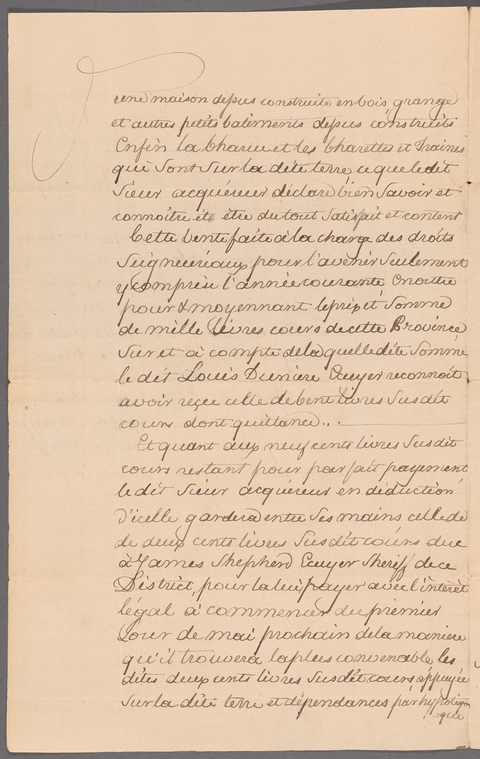 une maison depuis construite en bois, grange
et autres petits batiments depuis construits
Enfin la Charue et les Charettes et Traines
qui sont sur la dite terre ce que le dit
Sieur acquéreur déclare bien savoir et
connoître et être du tout satisfait et content
Cette Vente faite à la charge des droits
Seigneuriaux pour l'avenir seulement
y compris l'année courante En outre
pour & moyennant le prix et Somme
de mille Livres cours de cette Province
Sur et à compte de la quelle dite Somme
le dit Louis Duniere Ecuyer reconnoît
avoir reçue celle de Cent livres Susdit
cours dont quittance..
Et quant aux neuf cents livres Susdit
cours restant pour parfait payement
le dit Sieur acquéreur en déduction
d'icelle gardera entre Ses mains celle de
de deux cents livres Susdit cours due
à James Shepherd Ecuyer Sheriff de ce
District, pour la lui payer avec l'intérêt
légal à commencer du premier
Jour de mai prochain de la maniere
qu'il trouvera la plus convenable, les
dites deux cents livres Susdit cours appuyée
Sur la dite terre et dépendances par hypothèque
que